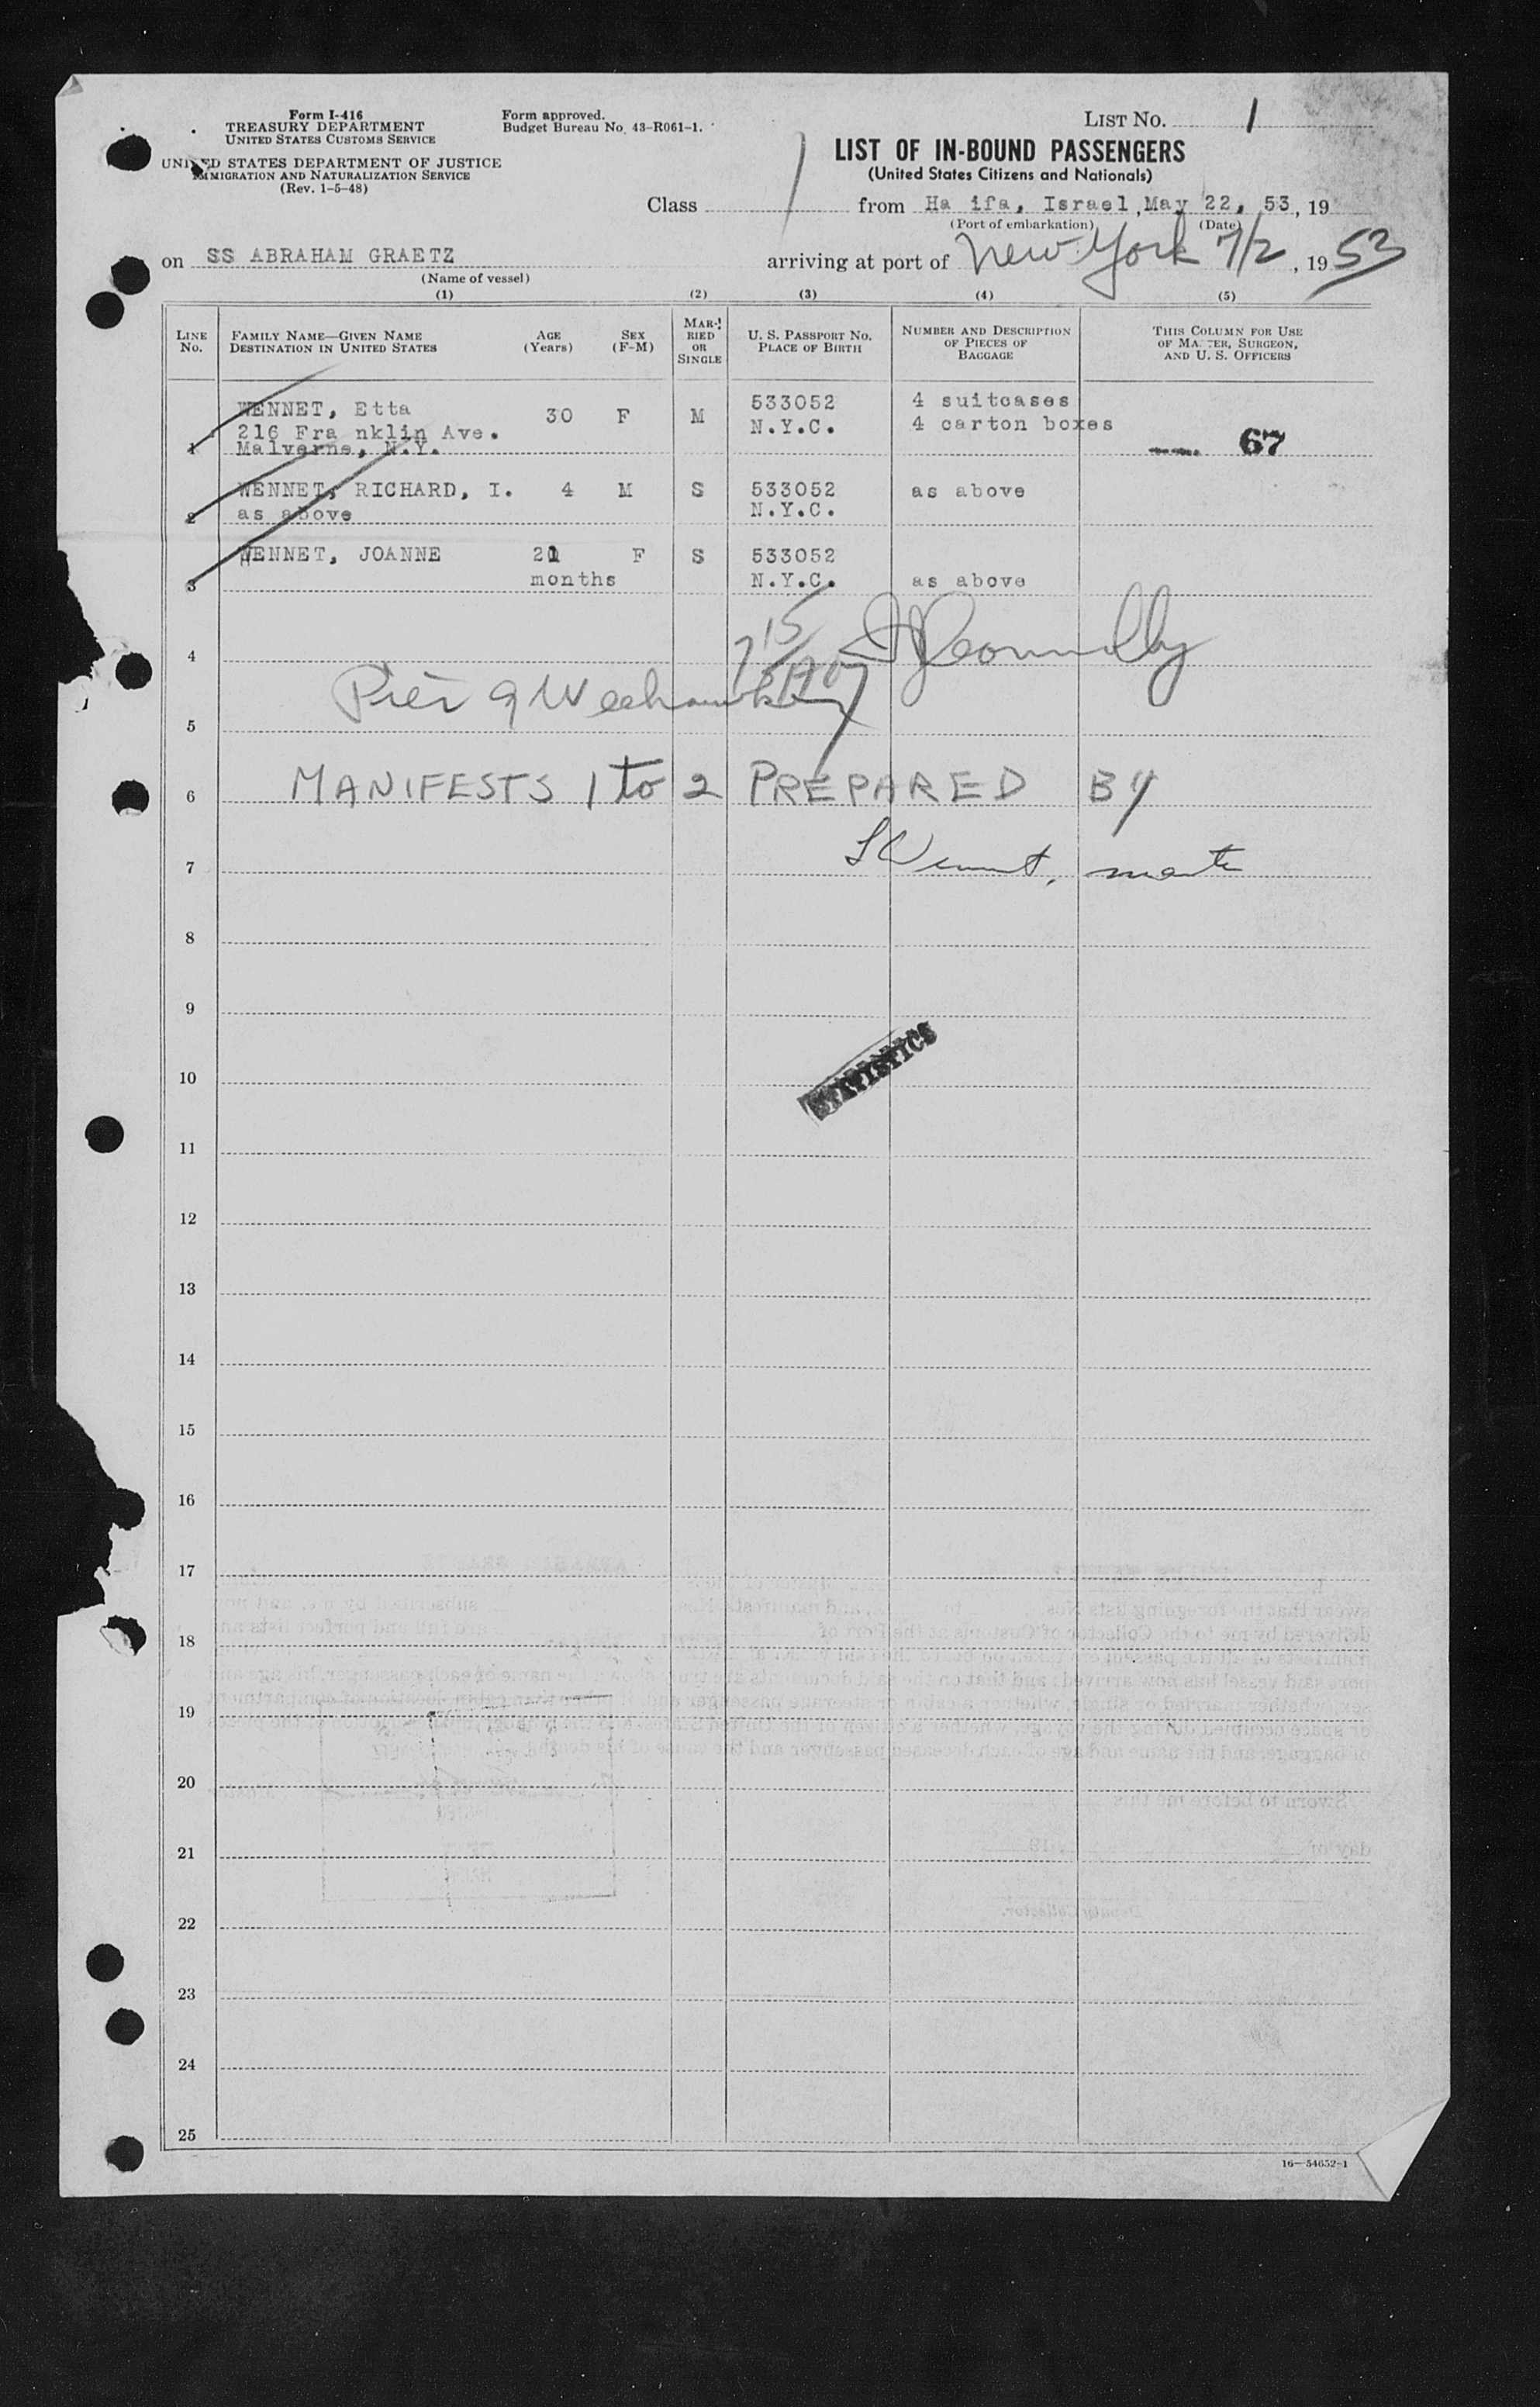 Form I-416
TREASURY DEPARTMENT
UNITED STATES CUSTOMS SERVICE
UNITED STATES DEPARTMENT OF JUSTICE
IMMIGRATION AND NATURALIZATION SERVICE
(Rev. 1-5-48)
Form approved.
Budget Bureau No. 43-R061-1.
LIST NO. 1
LIST OF IN-BOUND PASSENGERS
(United States Citizens and Nationals)
Class from Ha ifa, Israel, May 22, 53, 19
(Port of embarkation) (Date)
on SS ABRAHAM GRAETZ arriving at port of New York 7/2, 1953
(Name of vessel)
(1) (2) (3) (4) (5)
LINE No. FAMILY NAME—GIVEN NAME DESTINATION IN UNITED STATES AGE (Years) SEX (F-M) MARRIED OR SINGLE U. S. PASSPORT NO. PLACE OF BIRTH NUMBER AND DESCRIPTION OF PIECES OF BAGGAGE THIS COLUMN FOR USE OF MASTER, SURGEON, AND U. S. OFFICERS
WENNET, Etta 30 F M 533052 4 suitcases
216 Fra nklin Ave. N.Y.C. 4 carton boxes
1 Malverne, N.Y. 67
WENNET, RICHARD, I. 4 M S 533052 as above
2 as above N.Y.C.
WENNET, JOANNE 21 F S 533052
3 months N.Y.C. as above
4
Pier 9 Weehawken
5
6 MANIFESTS 1 to 2 PREPARED BY
7
8
9
STATISTICS
10
11
12
13
14
15
16
17
18
19
20
21
22
23
24
25
16—54652-1